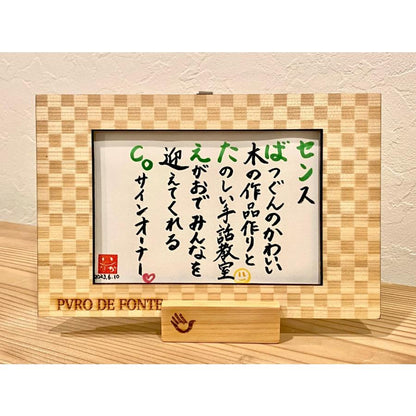 センス
ばつぐんのかわいい
木の作品作りと
たのしい手話教室
えがおでみんなを
迎えてくれる
C。サインオーナー
2023.6.10
PVRO DE FONTE